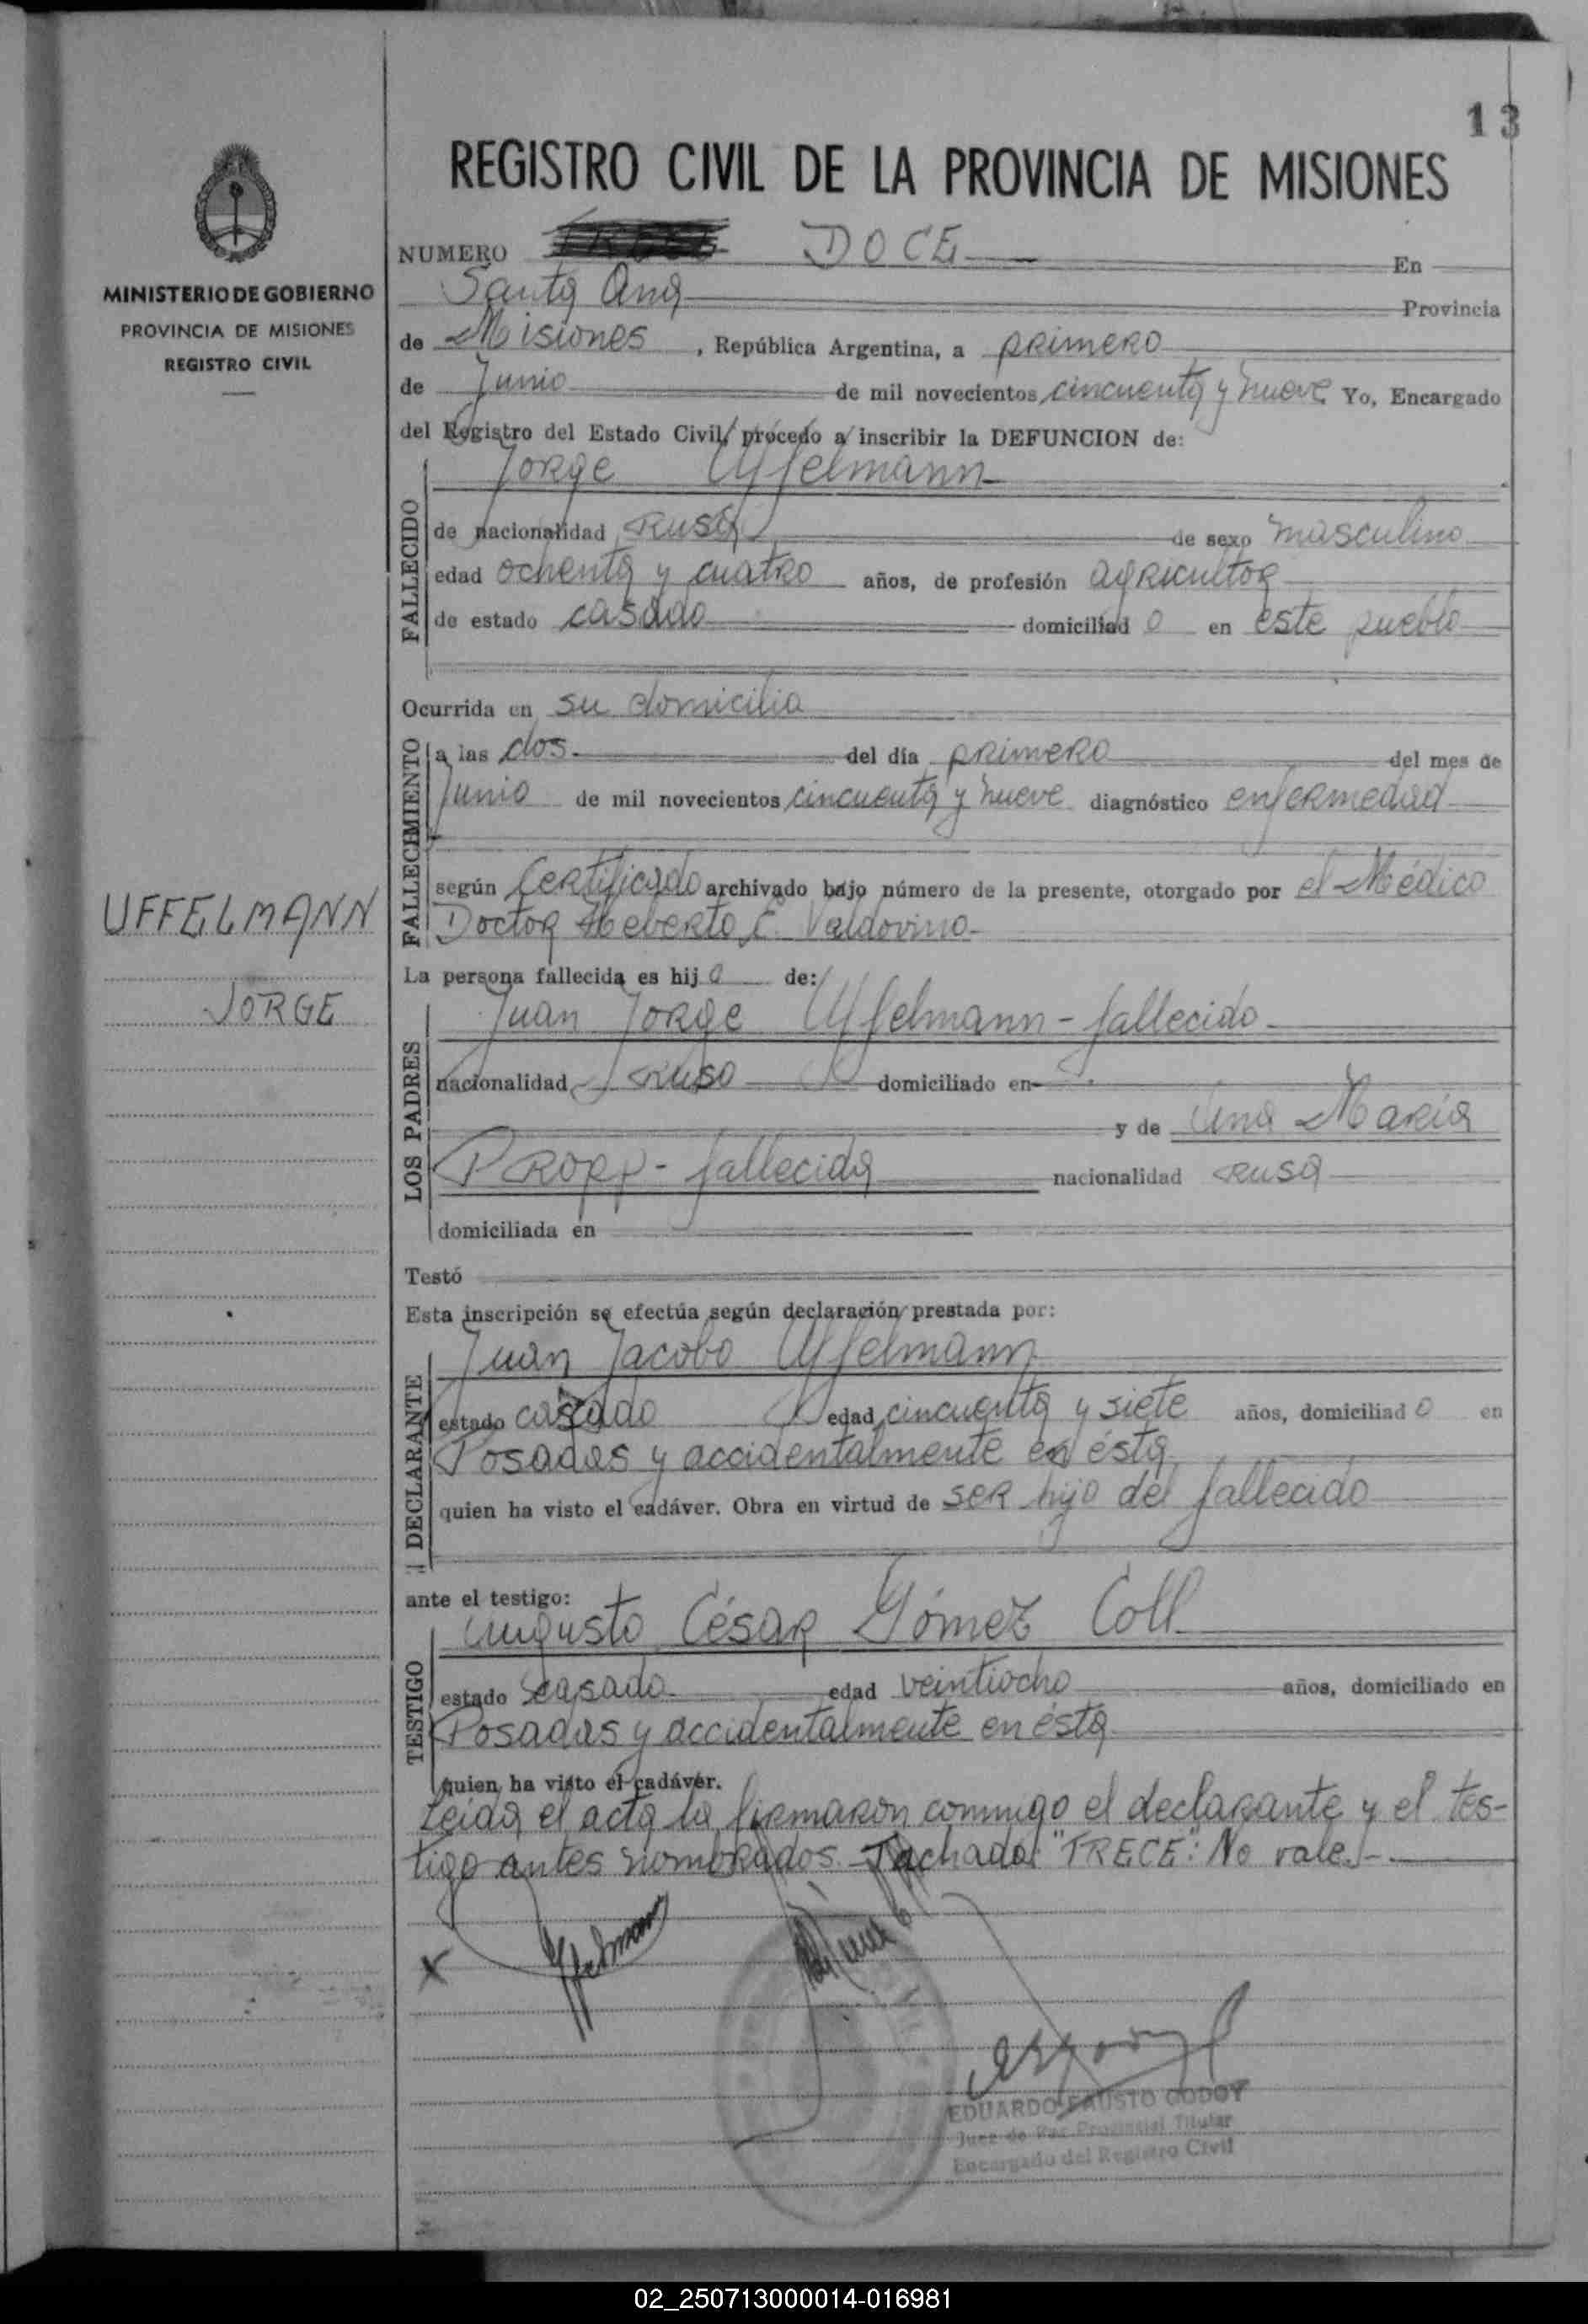 13
REGISTRO CIVIL DE LA PROVINCIA DE MISIONES
MINISTERIO DE GOBIERNO
PROVINCIA DE MISIONES
REGISTRO CIVIL
UFFELMANN
JORGE
NUMERO TRECE DOCE En
Santa Ana Provincia
de Misiones , República Argentina, a primero
de Junio de mil novecientos cincuenta y nueve Yo, Encargado
del Registro del Estado Civil, procedo a inscribir la DEFUNCION de:
FALLECIDO
Jorge Uffelmann
de nacionalidad rusa de sexo masculino
edad ochenta y cuatro años, de profesión agricultor
de estado casado domiciliad o en este pueblo
Ocurrida en su domicilio
FALLECIMIENTO
a las dos. del día primero del mes de
Junio de mil novecientos cincuenta y nueve diagnóstico enfermedad
según Certificado archivado bajo número de la presente, otorgado por el Médico
Doctor Heberto C. Valdovino
La persona fallecida es hij o de:
LOS PADRES
Juan Jorge Uffelmann - fallecido
nacionalidad ruso domiciliado en
y de Ana María
Propp - fallecida nacionalidad rusa
domiciliada en
Testó
Esta inscripción se efectúa según declaración prestada por:
DECLARANTE
Juan Jacobo Uffelmann
estado casado edad cincuenta y siete años, domiciliad o en
Posadas y accidentalmente en ésta
quien ha visto el cadáver. Obra en virtud de ser hijo del fallecido
ante el testigo:
TESTIGO
Augusto César Gómez Coll
estado casado edad veintiocho años, domiciliado en
Posadas y accidentalmente en ésta
quien ha visto el cadáver.
Leida el acta la firmaron conmigo el declarante y el tes-
tigo antes nombrados. Tachado: "TRECE": No vale.-
x Uffelmann
EDUARDO FAUSTO GODOY
Juez de Paz Provincial Titular
Encargado del Registro Civil
02_250713000014-016981